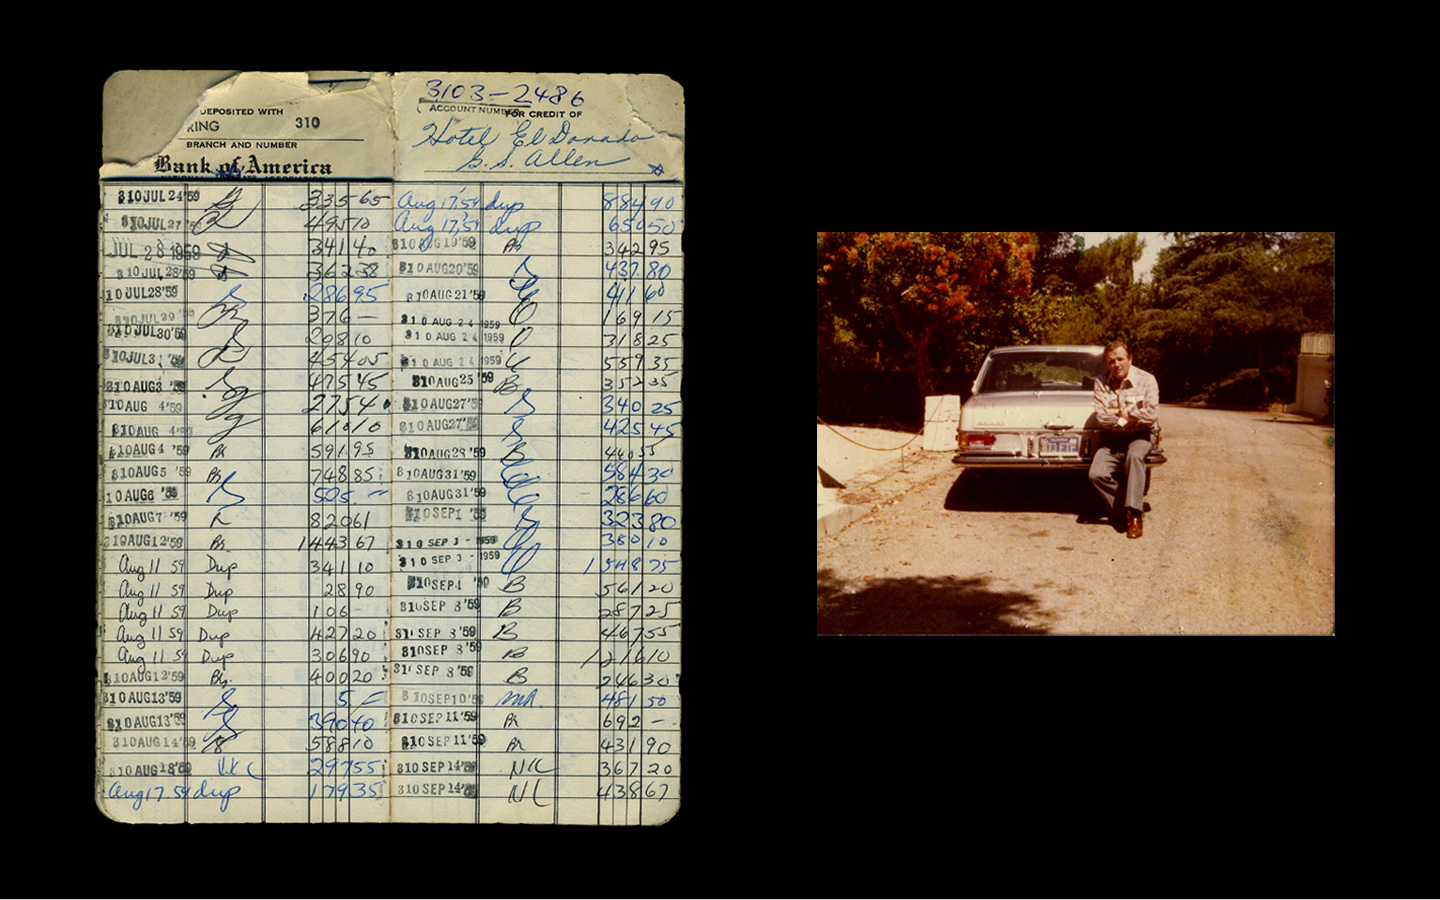 DEPOSITED WITH
RING 310
BRANCH AND NUMBER
Bank of America
3103-2486
ACCOUNT NUMBER FOR CREDIT OF
Hotel El Dorado
G. S. Allen
310JUL 24'59 335 65
310JUL27 495 10
JUL 28 1959 341 40
310JUL28'59 362 38
10JUL28'59 286 95
310JUL29 376 —
310JUL30'59 208 10
310JUL31 '59 454 05
310AUG3 '59 475 45
310AUG 4'59 275 40
310AUG 4'59 610 10
310AUG4 '59 591 95
310AUG5 '59 748 85
10AUG6 '59 505 —
310AUG7 '59 820 61
310AUG12'59 1443 67
Aug 11 59 Dup 341 10
Aug 11 59 Dup 28 90
Aug 11 59 Dup 106 —
Aug 11 59 Dup 427 20
Aug 11 59 Dup 306 90
310AUG12'59 400 20
310AUG13'59 5 —
310AUG13'59 390 40
310AUG14'59 588 10
310AUG18'59 297 55
Aug 17 59 dup 179 35
Aug 17, 59 dup 884 90
Aug 17, 59 dup 650 50
310AUG19'59 342 95
310AUG20'59 437 80
310AUG21'59 411 60
310 AUG 24 1959 169 15
310 AUG 24 1959 318 25
310 AUG 24 1959 559 35
310AUG25 '59 B 352 35
310AUG27'59 340 25
310AUG27'59 425 45
310AUG28'59 B
310AUG31'59 584 30
310AUG31'59 286 60
310SEP1 '59 323 80
310 SEP 3 - 1959 380 10
310 SEP 3 - 1959 1548 75
310SEP4 '59 B 561 20
310SEP 8'59 B 287 25
310SEP 8'59 B 467 55
310SEP 8'59 B 1216 10
310SEP 8'59 B 246 30
310SEP10'59 481 50
310SEP11'59 692 —
310SEP11'59 431 90
310SEP14'59 367 20
310SEP14'59 438 67